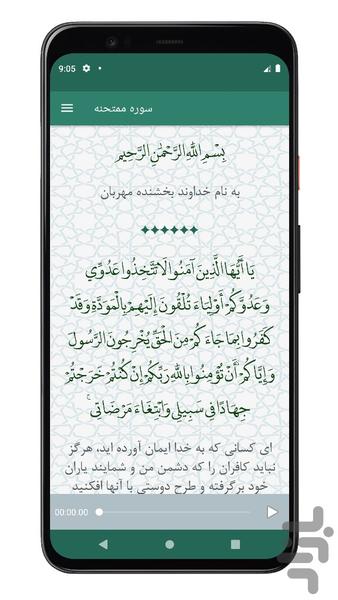 9:05
سوره ممتحنه
بِسْمِ اللَّهِ الرَّحْمَٰنِ الرَّحِيمِ
به نام خداوند بخشنده مهربان
يَا أَيُّهَا الَّذِينَ آمَنُوا لَا تَتَّخِذُوا عَدُوِّي
وَعَدُوَّكُمْ أَوْلِيَاءَ تُلْقُونَ إِلَيْهِمْ بِالْمَوَدَّةِ وَقَدْ
كَفَرُوا بِمَا جَاءَكُمْ مِنَ الْحَقِّ يُخْرِجُونَ الرَّسُولَ
وَإِيَّاكُمْ ۙ أَنْ تُؤْمِنُوا بِاللَّهِ رَبِّكُمْ إِنْ كُنْتُمْ خَرَجْتُمْ
جِهَادًا فِي سَبِيلِي وَابْتِغَاءَ مَرْضَاتِي ۚ
ای کسانی که به خدا ایمان آورده اید، هرگز
نباید کافران را که دشمن من و شمایند یاران
خود برگرفته و طرح دوستی با آنها افکنید
00:00.00
بازار